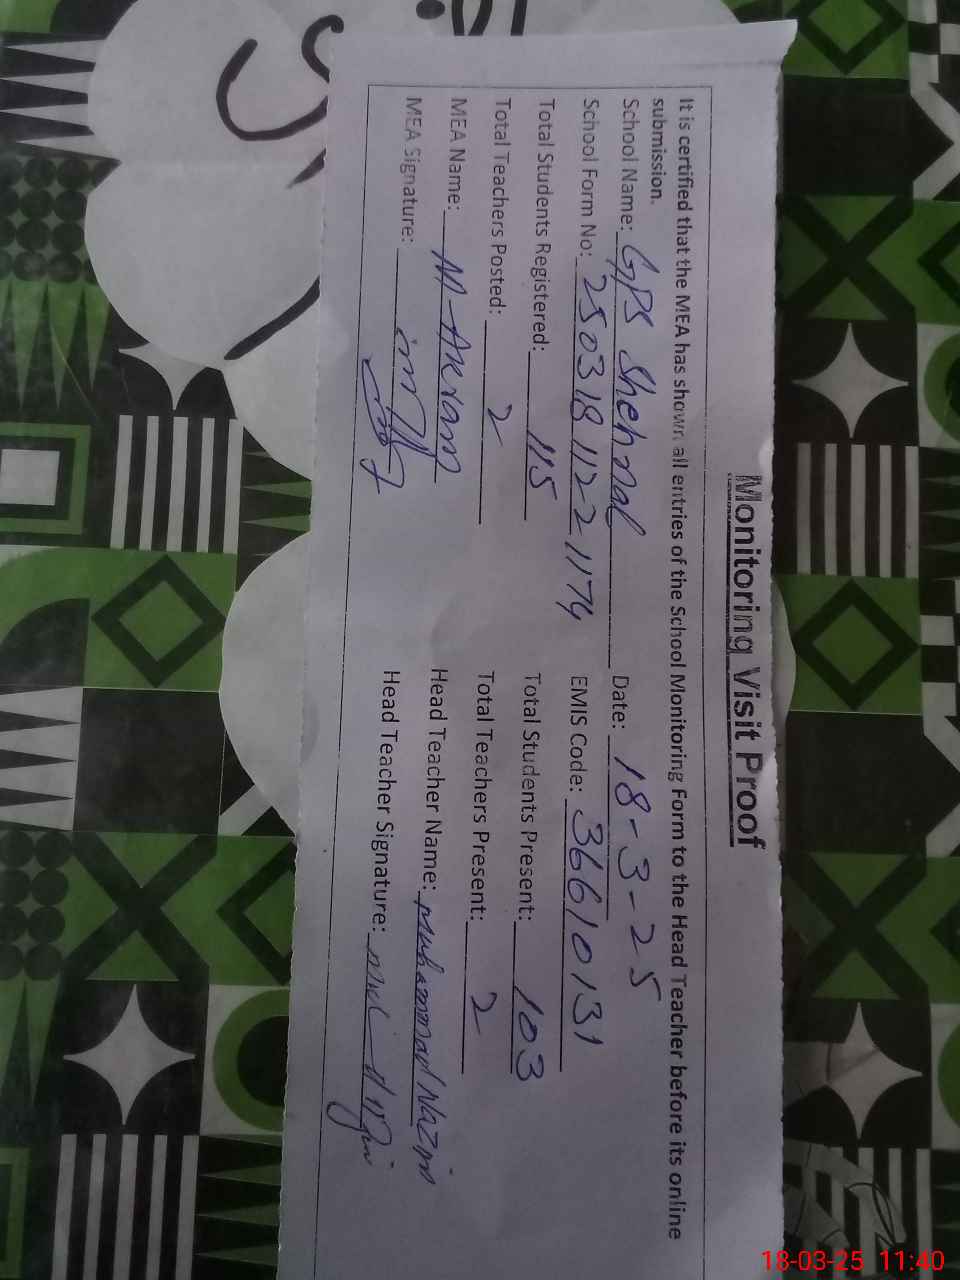 Monitoring Visit Proof
It is certified that the MEA has shown all entries of the School Monitoring Form to the Head Teacher before its online
submission.
School Name: GPS Shehnal Date: 18-3-25
School Form No: 250318 1122 1174 EMIS Code: 36610131
Total Students Registered: 115 Total Students Present: 103
Total Teachers Posted: 2 Total Teachers Present: 2
MEA Name: M-Akram Head Teacher Name: Muhammad Nazir
MEA Signature: Head Teacher Signature:
18-03-25 11:40